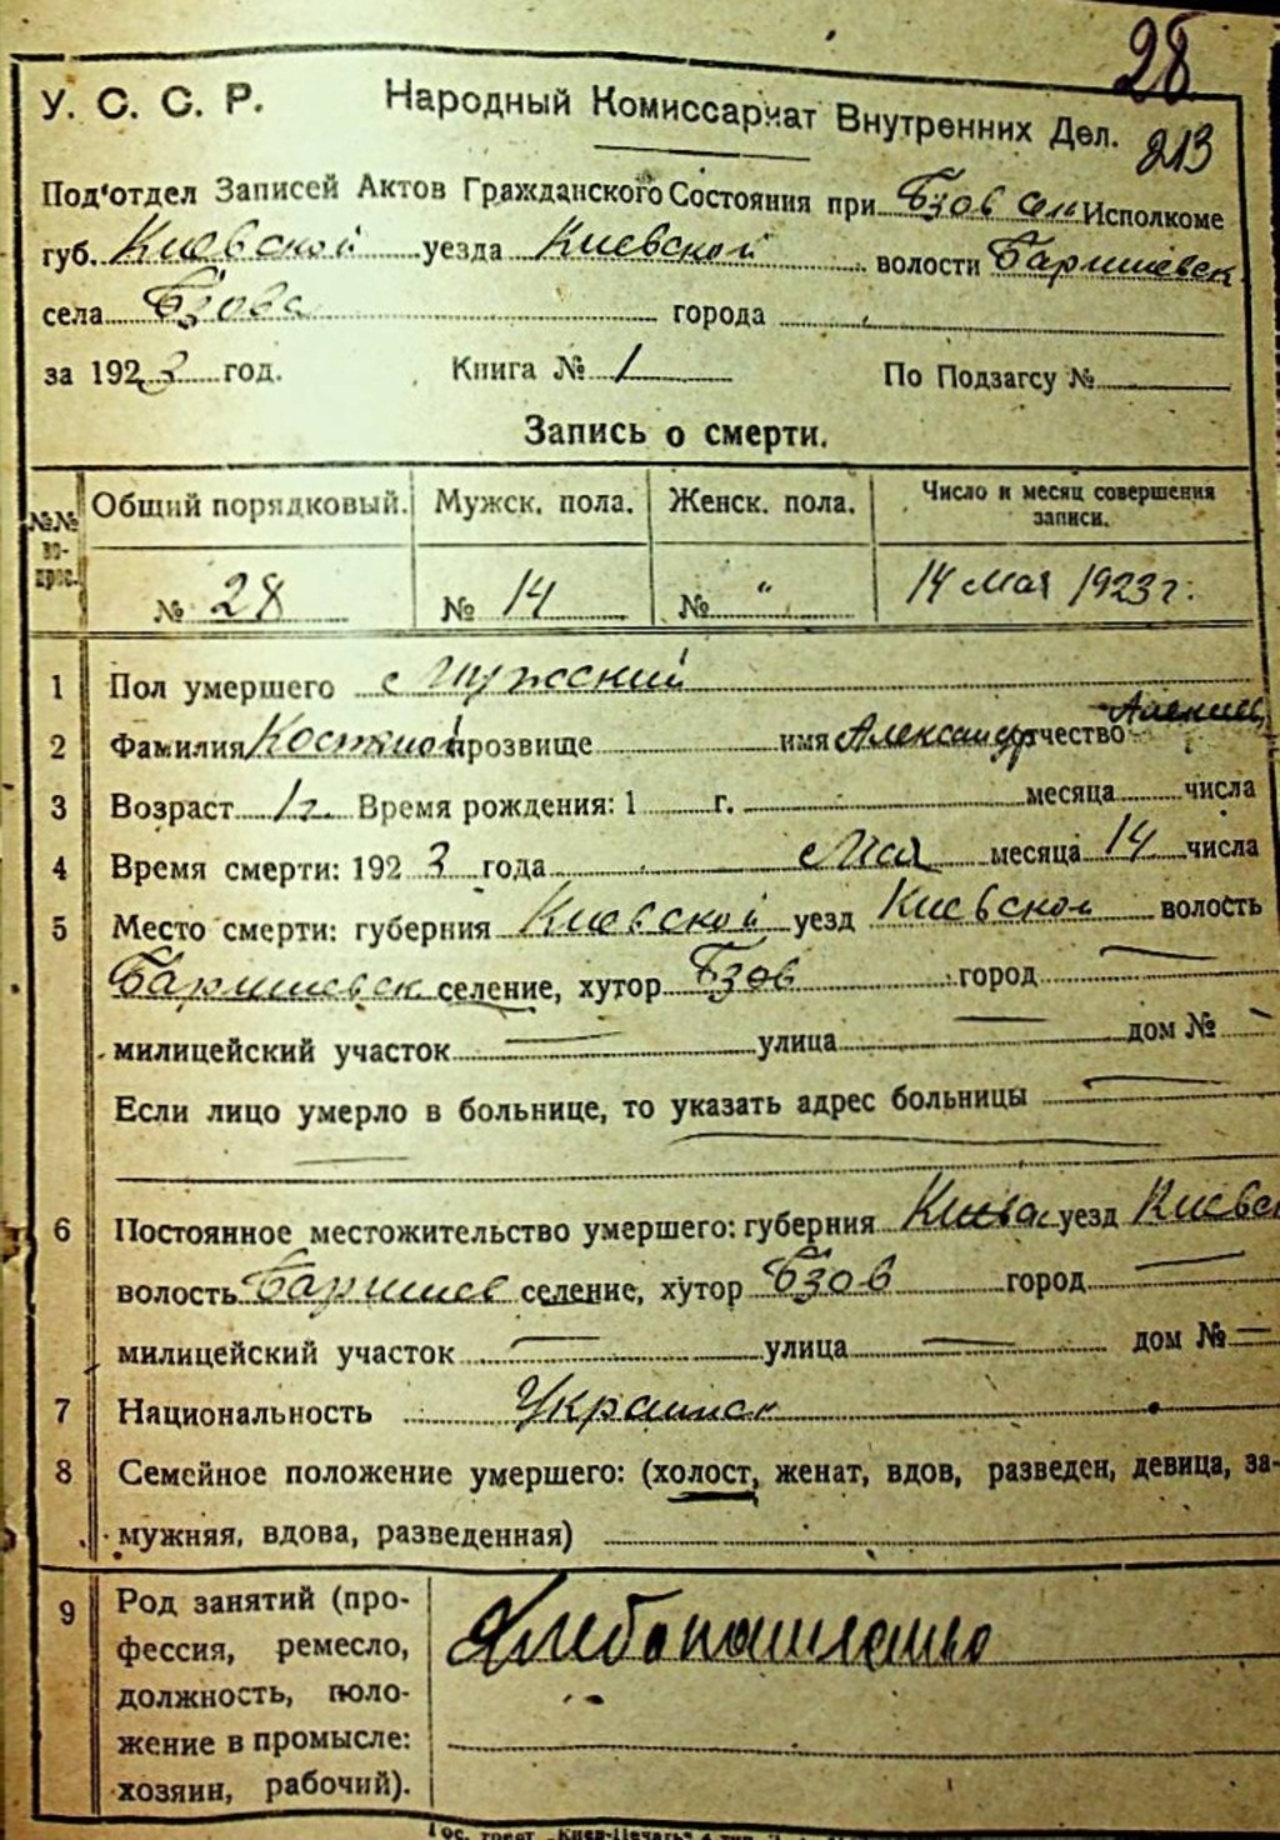 28
У. С. С. Р. Народный Комиссариат Внутренних Дел. 213
Под'отдел Записей Актов Гражданского Состояния при Бзов сель Исполкоме
губ. Киевской уезда Киевской волости Баришевск
села Бзова города
за 1923 год. Книга № 1 По Подзагсу №
Запись о смерти.
№№ во- прос. Общий порядковый. Мужск. пола. Женск. пола. Число и месяц совершения
записи.
№ 28 № 14 № " 14 мая 1923 г.
1 Пол умершего Мужский
2 Фамилия прозвище имя Александр отчество
3 Возраст 1 г. Время рождения: 1 г. месяца числа
4 Время смерти: 1923 года Мая месяца 14 числа
5 Место смерти: губерния Киевской уезд Киевской волость
Баришевск селение, хутор Бзов город —
милицейский участок — улица — дом № —
Если лицо умерло в больнице, то указать адрес больницы —
6 Постоянное местожительство умершего: губерния уезд Киевск
волость Баришев селение, хутор Бзов город —
милицейский участок — улица — дом № —
7 Национальность Украинец
8 Семейное положение умершего: (холост, женат, вдов, разведен, девица, за-
мужняя, вдова, разведенная)
9 Род занятий (про-
фессия, ремесло,
должность, поло-
жение в промысле:
хозяин, рабочий).
Гос. трест „Киев-Печать"